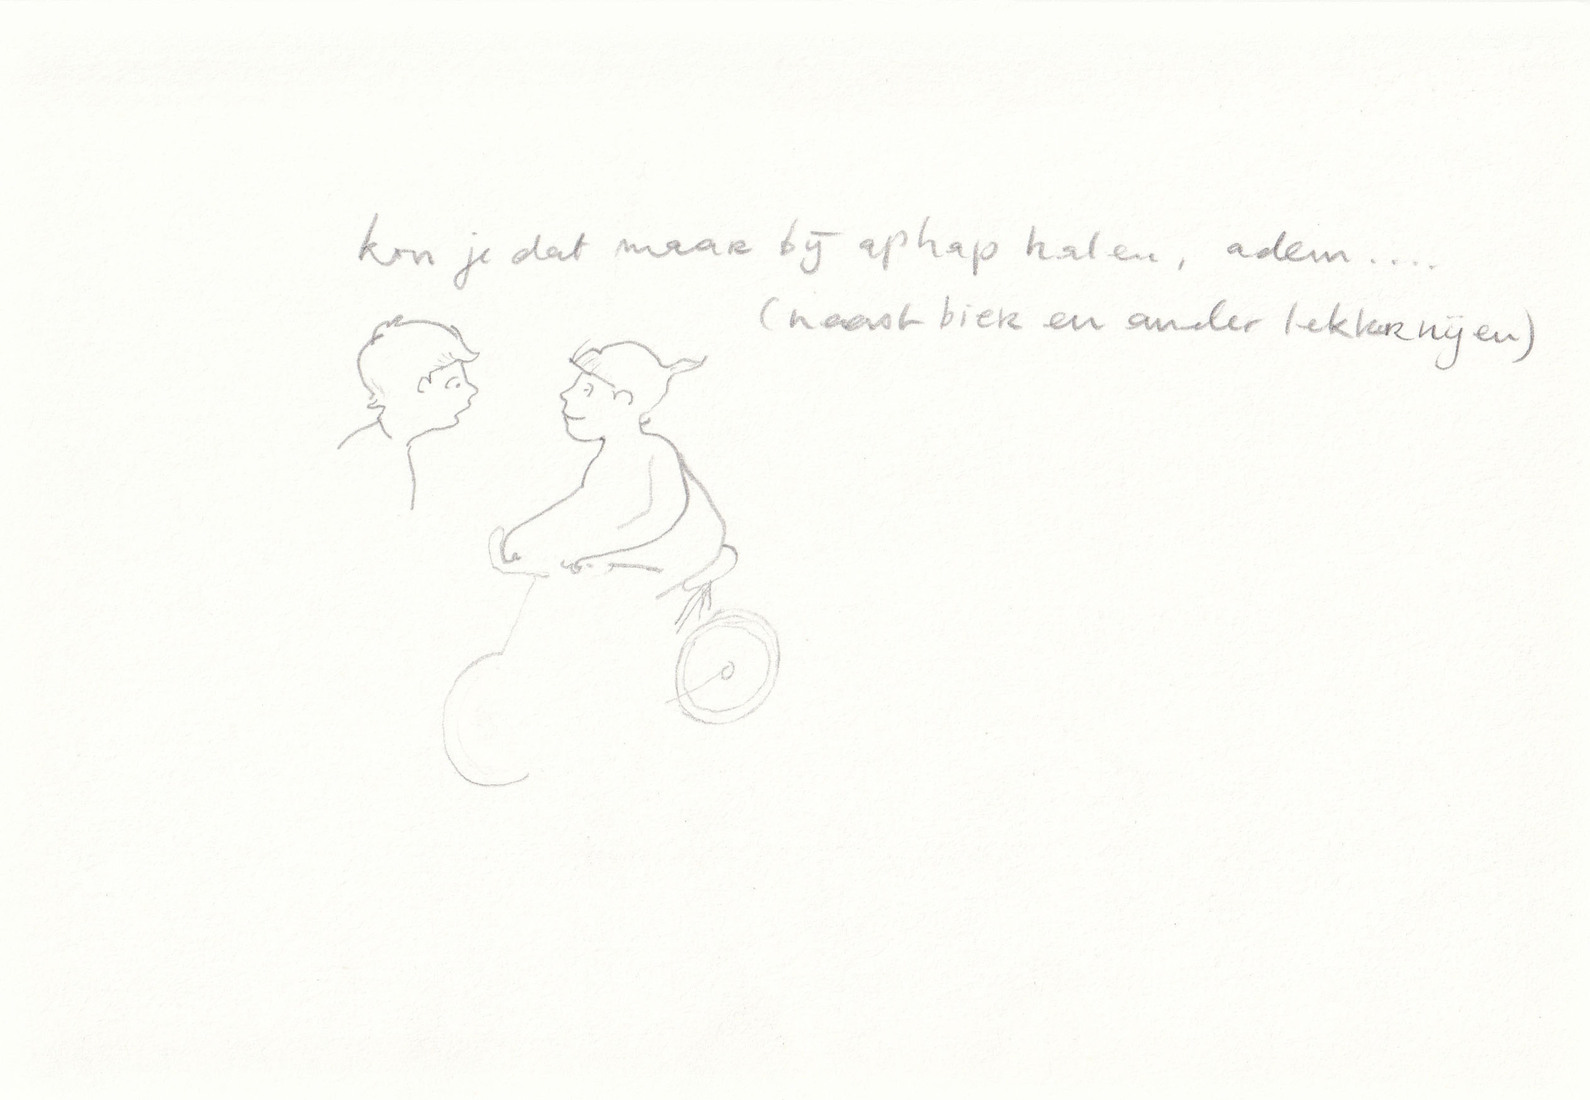 kon je dat maar bij aphap halen, adem....
(naast bier en ander lekkernijen)